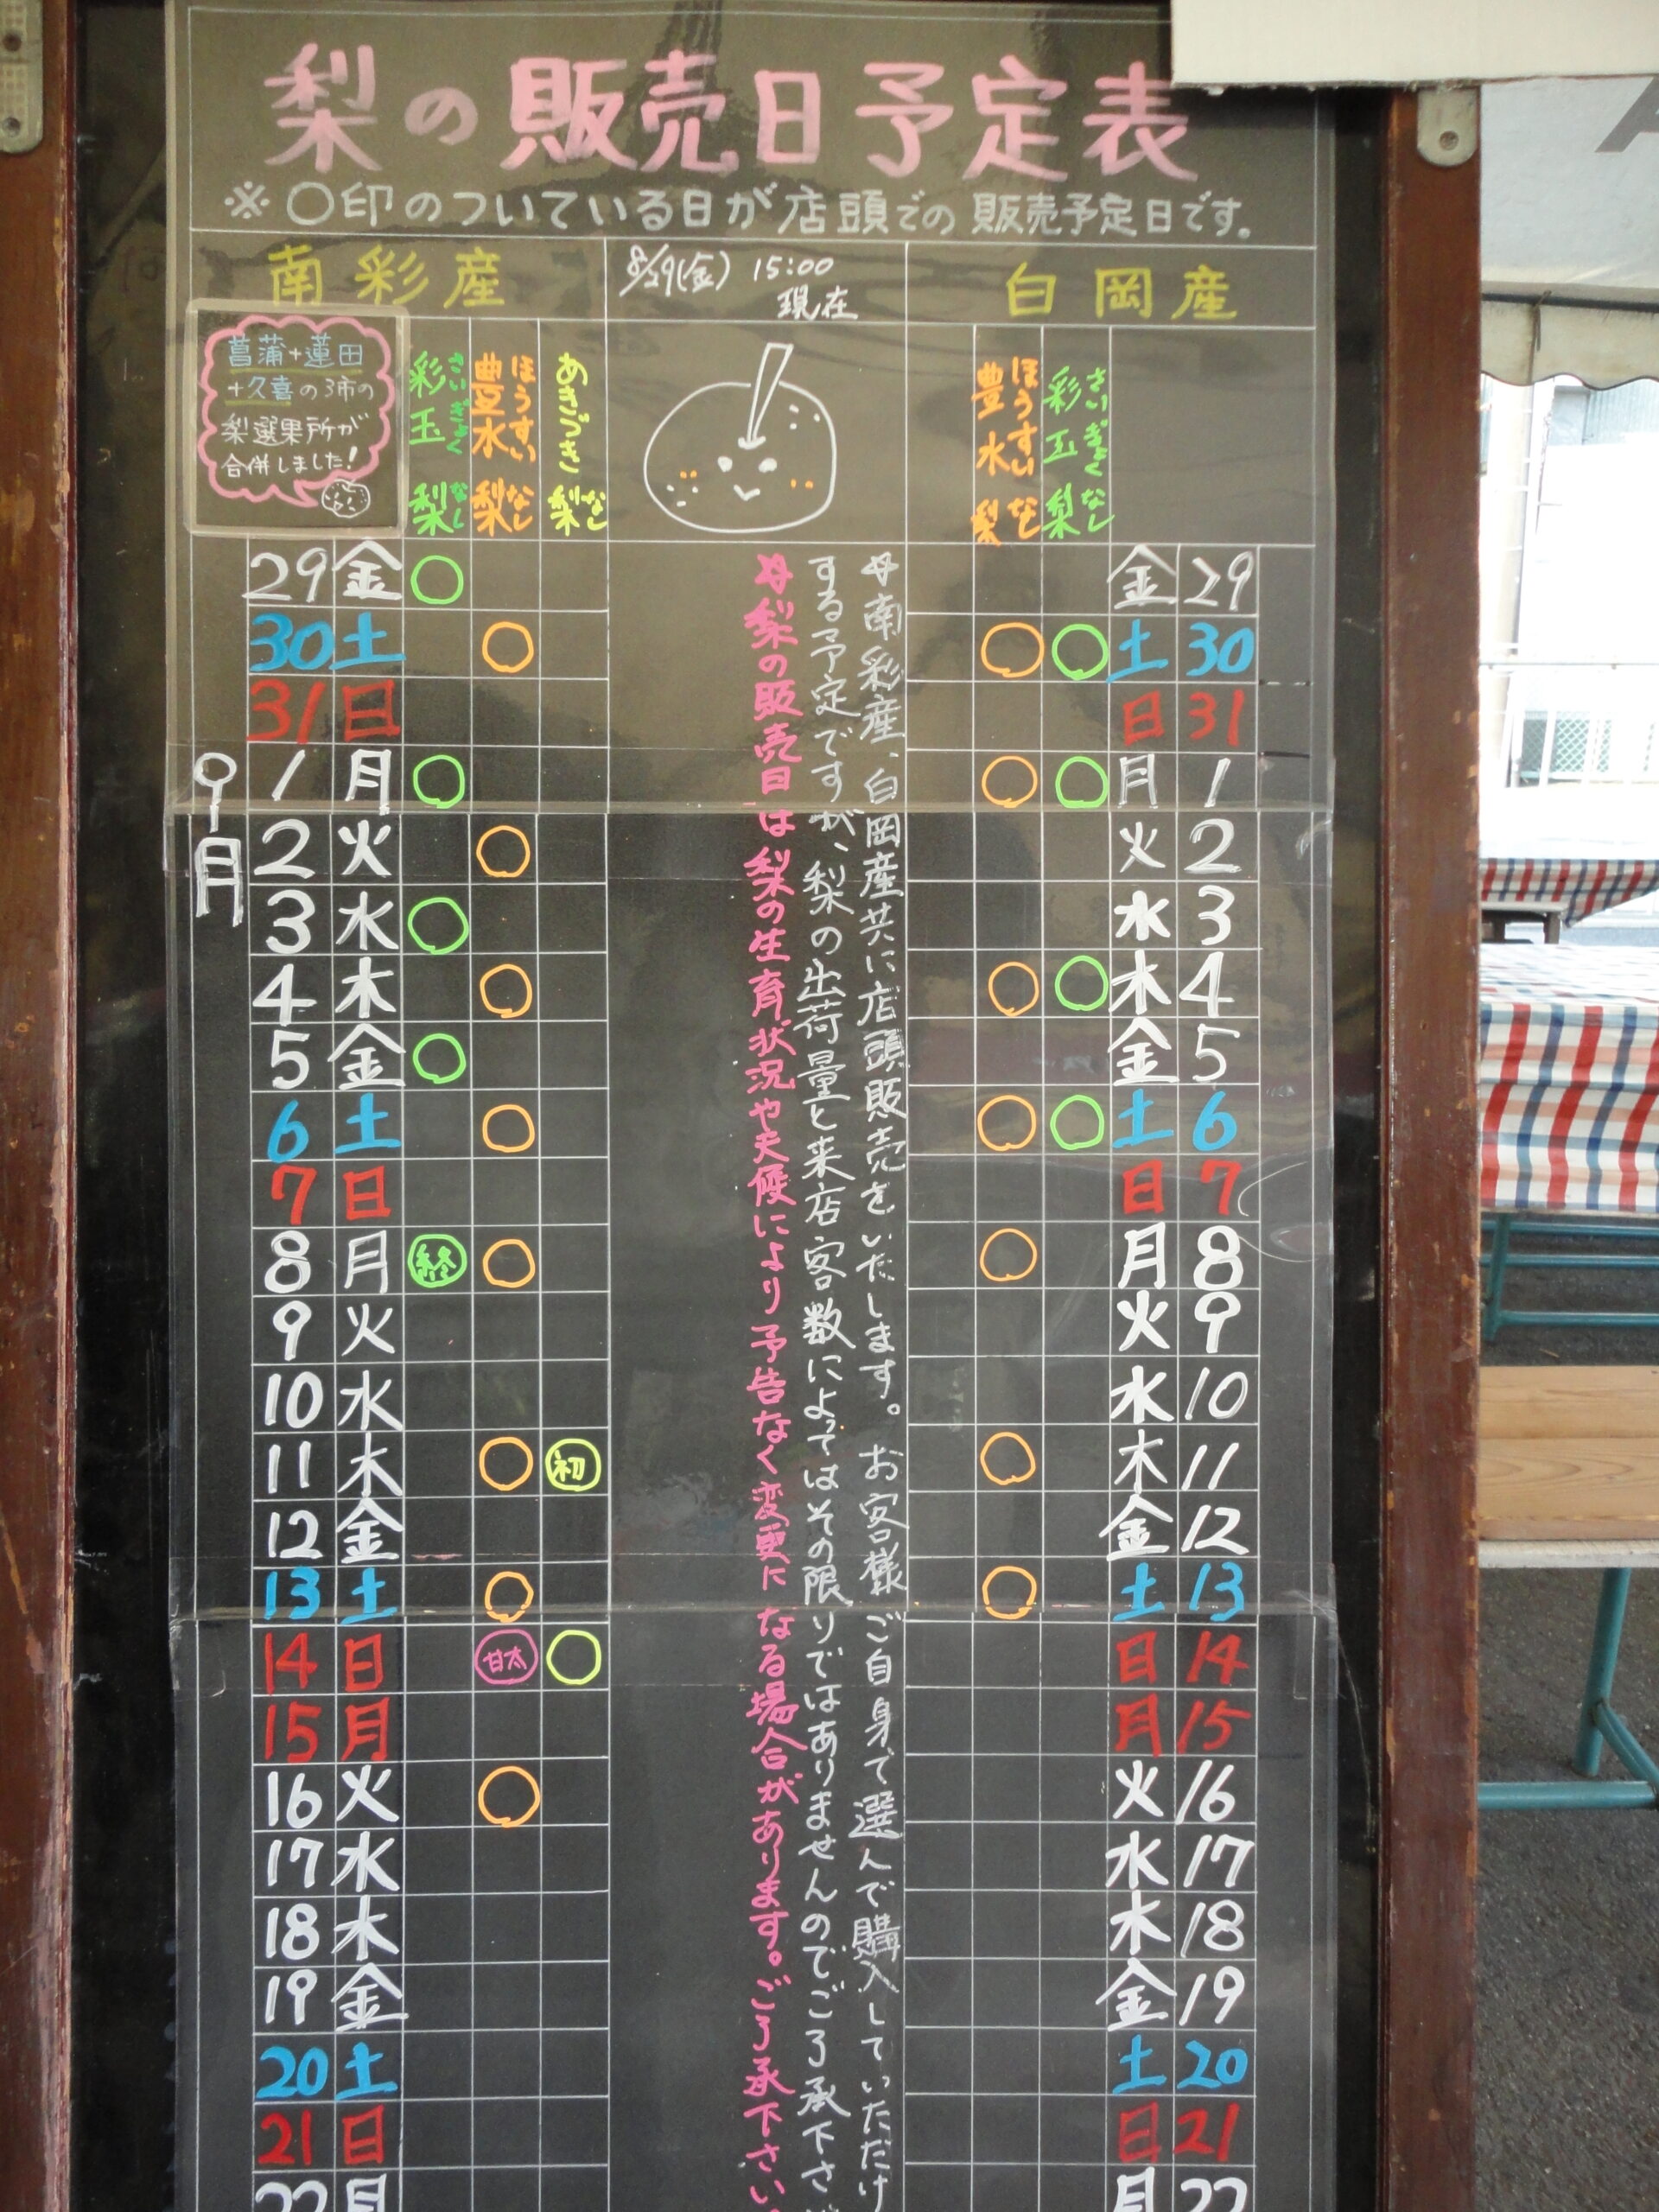 梨の販売日予定表
※○印のついている日が店頭での販売予定日です。
南彩産
8/29(金) 15:00
現在
白岡産
菖蒲+蓮田
+久喜の3市の
梨選果所が
合併しました!
彩玉梨 さいぎょくなし
豊水梨 ほうすいなし
あきづき梨 なし
豊水梨 ほうすいなし
彩玉梨 さいぎょくなし
29 金 ○ 金 29
30 土 ○ ○ ○ 土 30
31 日 日 31
9月
1 月 ○ ○ ○ 月 1
2 火 ○ 火 2
3 水 ○ 水 3
4 木 ○ ○ ○ 木 4
5 金 ○ 金 5
6 土 ○ ○ ○ 土 6
7 日 日 7
8 月 終 ○ ○ 月 8
9 火 火 9
10 水 水 10
11 木 ○ 初 ○ 木 11
12 金 金 12
13 土 ○ ○ 土 13
14 日 甘太 ○ 日 14
15 月 月 15
16 火 ○ 火 16
17 水 水 17
18 木 木 18
19 金 金 19
20 土 土 20
21 日 日 21
22 月 月 22
☆南彩産、白岡産共に店頭販売をいたします。お客様ご自身で選んで購入していただけ
する予定ですが、梨の出荷量と来店客数によってはその限りではありませんのでご了承下さい
☆梨の販売日は梨の生育状況や天候により予告なく変更になる場合があります。ご了承下さい。